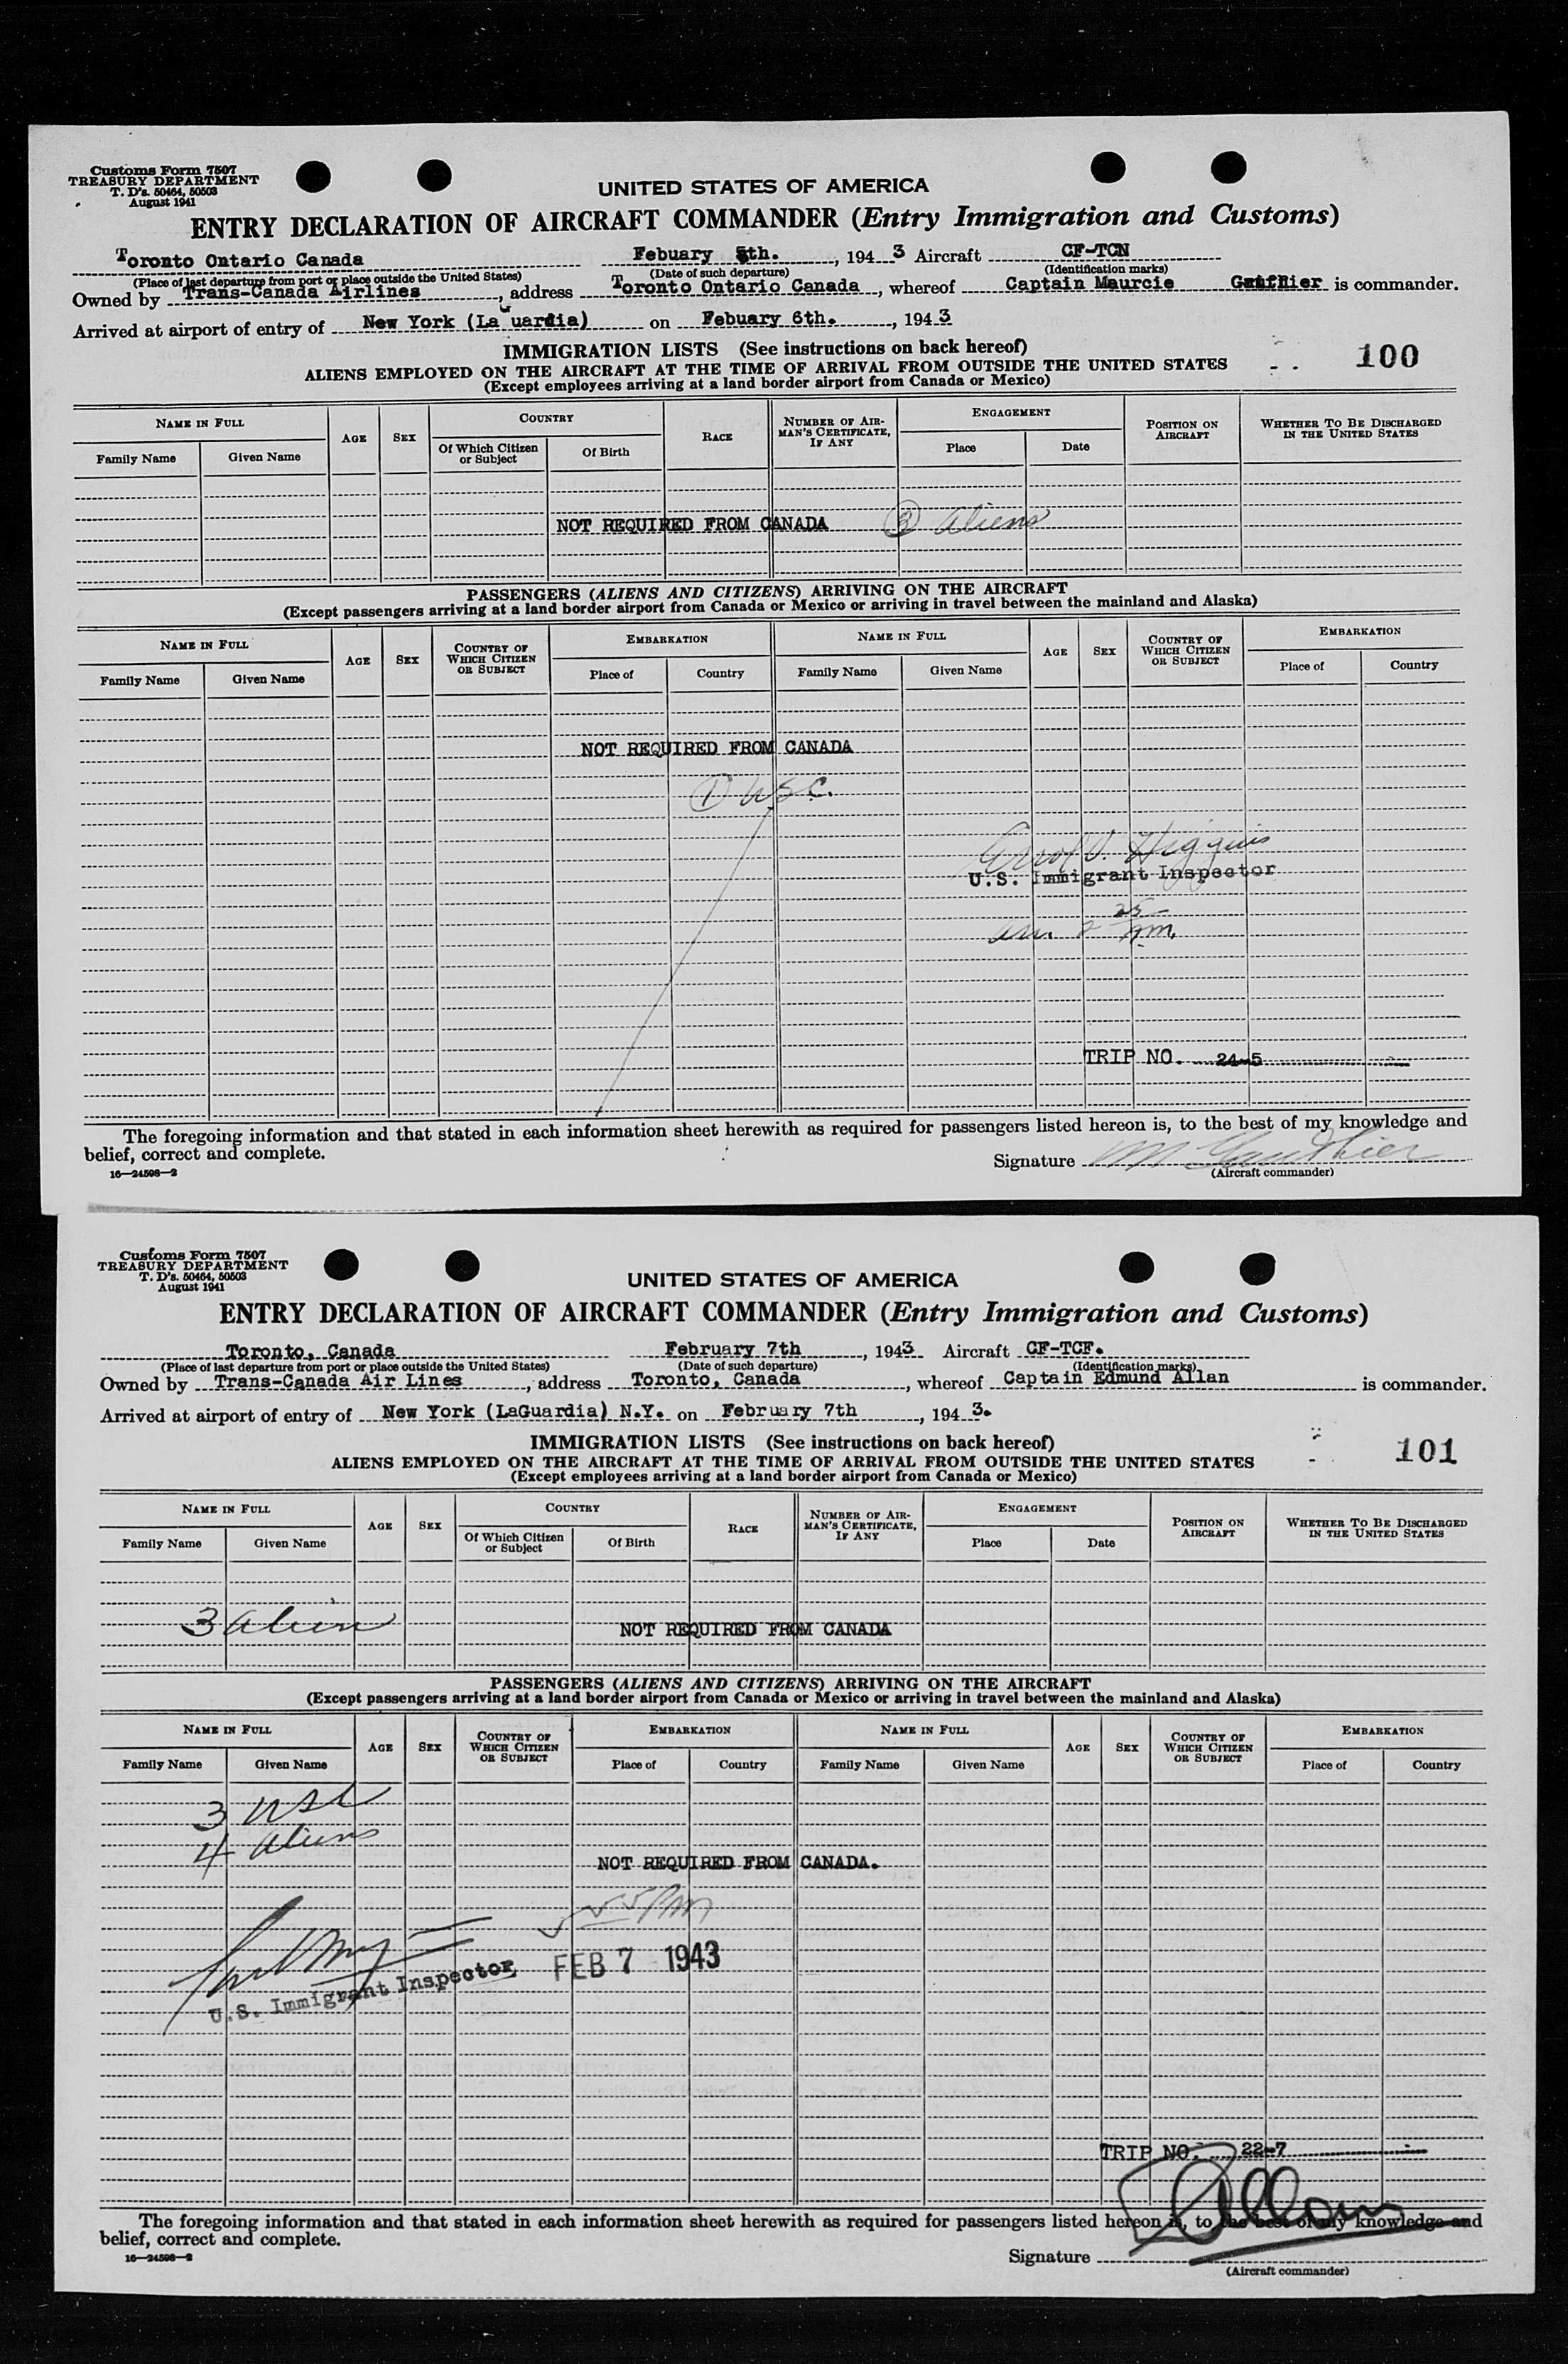 Customs Form 7507
TREASURY DEPARTMENT
T. D's. 50464, 50503
August 1941
UNITED STATES OF AMERICA
ENTRY DECLARATION OF AIRCRAFT COMMANDER (Entry Immigration and Customs)
Toronto Ontario Canada Febuary 5th. , 194 3 Aircraft CF-TCN
(Place of last departure from port or place outside the United States) (Date of such departure) (Identification marks)
Owned by Trans-Canada Airlines , address Toronto Ontario Canada , whereof Captain Maurcie is commander.
Arrived at airport of entry of New York (La Guardia) on Febuary 6th. , 194 3
IMMIGRATION LISTS (See instructions on back hereof)
100
ALIENS EMPLOYED ON THE AIRCRAFT AT THE TIME OF ARRIVAL FROM OUTSIDE THE UNITED STATES
(Except employees arriving at a land border airport from Canada or Mexico)
NAME IN FULL AGE SEX COUNTRY RACE NUMBER OF AIRMAN'S CERTIFICATE, IF ANY ENGAGEMENT POSITION ON AIRCRAFT WHETHER TO BE DISCHARGED IN THE UNITED STATES
Family Name Given Name Of Which Citizen or Subject Of Birth Place Date
NOT REQUIRED FROM CANADA 3 Aliens
PASSENGERS (ALIENS AND CITIZENS) ARRIVING ON THE AIRCRAFT
(Except passengers arriving at a land border airport from Canada or Mexico or arriving in travel between the mainland and Alaska)
NAME IN FULL AGE SEX COUNTRY OF WHICH CITIZEN OR SUBJECT EMBARKATION NAME IN FULL AGE SEX COUNTRY OF WHICH CITIZEN OR SUBJECT EMBARKATION
Family Name Given Name Place of Country Family Name Given Name Place of Country
NOT REQUIRED FROM CANADA
1 USC.
Errol V. Higgins
U.S. Immigrant Inspector
TRIP NO. 24-5
The foregoing information and that stated in each information sheet herewith as required for passengers listed hereon is, to the best of my knowledge and
belief, correct and complete.
Signature M Gauthier
16—24598—2 (Aircraft commander)
Customs Form 7507
TREASURY DEPARTMENT
T. D's. 50464, 50503
August 1941
UNITED STATES OF AMERICA
ENTRY DECLARATION OF AIRCRAFT COMMANDER (Entry Immigration and Customs)
Toronto, Canada February 7th , 1943 Aircraft CF-TCF.
(Place of last departure from port or place outside the United States) (Date of such departure) (Identification marks)
Owned by Trans-Canada Air Lines , address Toronto, Canada , whereof Captain Edmund Allan is commander.
Arrived at airport of entry of New York (LaGuardia) N.Y. on February 7th , 194 3.
IMMIGRATION LISTS (See instructions on back hereof)
101
ALIENS EMPLOYED ON THE AIRCRAFT AT THE TIME OF ARRIVAL FROM OUTSIDE THE UNITED STATES
(Except employees arriving at a land border airport from Canada or Mexico)
NAME IN FULL AGE SEX COUNTRY RACE NUMBER OF AIRMAN'S CERTIFICATE, IF ANY ENGAGEMENT POSITION ON AIRCRAFT WHETHER TO BE DISCHARGED IN THE UNITED STATES
Family Name Given Name Of Which Citizen or Subject Of Birth Place Date
3 Aliens NOT REQUIRED FROM CANADA
PASSENGERS (ALIENS AND CITIZENS) ARRIVING ON THE AIRCRAFT
(Except passengers arriving at a land border airport from Canada or Mexico or arriving in travel between the mainland and Alaska)
NAME IN FULL AGE SEX COUNTRY OF WHICH CITIZEN OR SUBJECT EMBARKATION NAME IN FULL AGE SEX COUNTRY OF WHICH CITIZEN OR SUBJECT EMBARKATION
Family Name Given Name Place of Country Family Name Given Name Place of Country
3 USC
4 Aliens
NOT REQUIRED FROM CANADA.
FEB 7 1943
U.S. Immigrant Inspector
TRIP NO. 22-7
E Allan
The foregoing information and that stated in each information sheet herewith as required for passengers listed hereon is, to the best of my knowledge and
belief, correct and complete.
16—24598—2 Signature
(Aircraft commander)